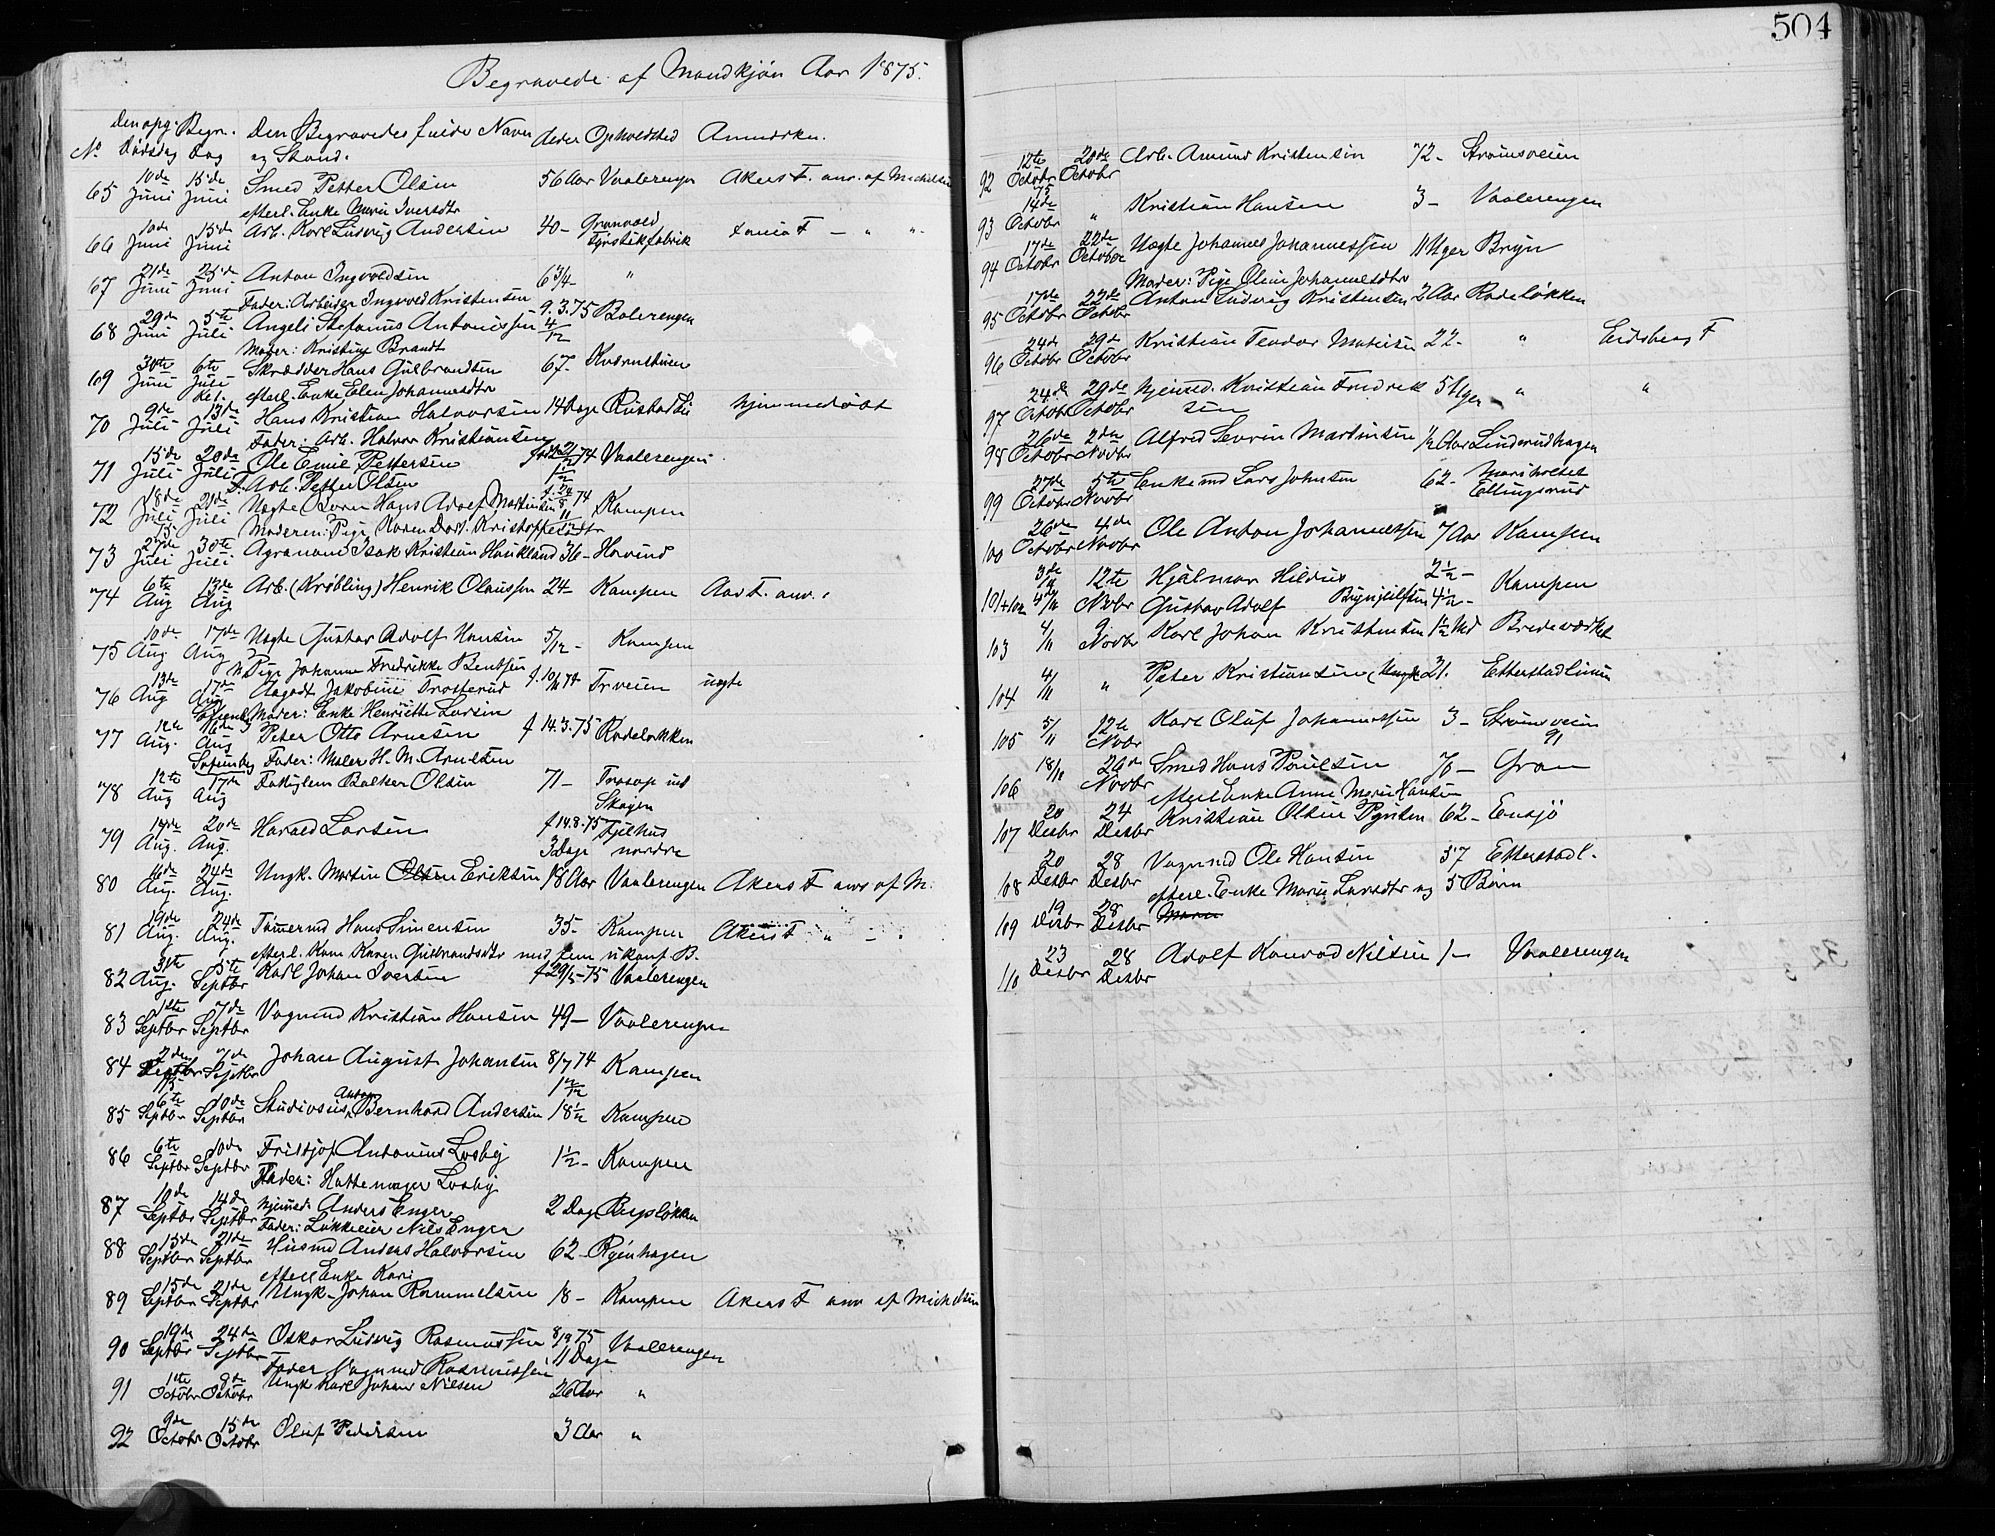 504
Begravede af Mandkjøn Aar 1875.
No. Den opg. Dødsdag Begr. Dag Den Begravedes fulde Navn og Stand. Alder Opholdsted Anmærkn.
65 10de Juni 15de Juni Smed Petter Olsen 56 Aar Vaalerengen Akers F. anv. af Michelsen
efterl. Enke Maria Iversdtr
66 10de Juni 15de Juni Arb. Karl Ludvig Andersen 40 - Grønvold Fyrstikfabrik F - " "
67 21de Juni 25de Juni Anton Ingvoldsen 6 3/4 - "
Fader: Arbeider Ingvold Kristensen
68 29de Juni 5te Juli Angell Stefanus Antonissen 9.3.75 4/12 Bolerengen
Moder: Kristine Brandt
69 30te Juni 6te Juli Skrædder Hans Gulbrandsen 67 - Kværnstuen
efterl. Enke Elen Johannesdtr
70 9de Juli 13de Juli Hans Kristian Halvorsen 14 Dage Rustadlie hjemmedøbt
Fader: Arb. Halvor Kristiansen
71 15de Juli 20de Juli Ole Emil Pettersen Vaalerengen
F. Arb. Petter Olsen
72 18de Juli 21de Juli Uægte Børn Hans Adolf Martinsen Kampen
Moderen: Pige Karen Dort. Kristoffersdtr
73 27de Juli 30te Juli Agronom Isak Kristian Haukland 36 - Hovind
74 6te Aug 13de Aug Arb. (Krøbling) Henrik Olaussen 24 - Kampen Aas F. anv.
75 10de Aug 17de Aug Uægte Gustav Adolf Hansen 5/12 - Kampen
M. Pige Johanne Fredrikke Bentsen
76 13de Aug 17de Aug Aagodt Jakobine Trosterud f. 10/11 74 Tr.veien uægte
Moder: Enke Henriette Larsen
77 12te Aug. 16de Aug Peter Otto Arnesen f 14.3.75 Rodeløkken
Fader: Maler H. M. Arnesen
78 12te Aug 17de Aug Fattiglem Balker Olsen 71 - Trosop ind Skogen
79 17de Aug. 20de Aug. Harald Larsen f 14.8.75 3 Dage Tjelhus nordre
80 16de Aug. 24de Aug. Ungk. Martin Olsen Eriksen 18 Aar Vaalerengen Akers F anv af M.
81 19de Aug. 24de Aug. Tømermd Hans Simensen 35 - Kampen Akers F " - "
efterl. Kone Karen Gulbrandsdtr med fem ukonf B.
82 31te Aug. 5te Septbr Karl Johan Iversen f 29/5 - 75 Vaalerengen
83 1ste Septbr 7de Septbr Vognmd Kristian Hansen 49 - Vaalerengen
84 2den Septbr 7de Septbr Johan August Johansen 8/7 74 Kampen
85 6te Septbr 10de Septbr Studiosus Anton Bernhard Andersen 18 1/2 Kampen
86 6te Septbr 10de Septbr Fritjof Antonius Losby 1 1/2 - Kampen
Fader: Hattemager Losby
87 10de Septbr 14de Septbr hjemmed. Anders Enger 2 Dag Ruseløkken
Fader: Løkkeeier Nils Enger
88 15de Septbr 21de Septbr Husmd Anders Halvorsen 62 - Ryenhagen
efterl Enke Kari
89 15de Septbr 21de Septbr Ungk. Johan Rommelsen 18 - Kampen Akers F anv af Michelsen
90 19de Septbr 24de Septbr Oskar Ludvig Rasmussen 8/9 75 11 Dage Vaalerengen
Fader Vognmd Rasmussen
91 1ste Octobr 8de Octobr Ungk Karl Johan Nilsen 26 Aar "
92 9de Octobr 15de Octobr Oluf Pedersen 3 Aar "
92 12te Octobr 20de Octobr Arb. Amund Kristensen 72 - Strømsveien
93 14de Octobr " Kristian Hansen 3 - Vaalerengen
94 17de Octobr 22de Octobr Uægte Johannes Johannessen 11 Uger Bryn
Moder: Pige Oline Johannesdtr
95 17de Octobr 22de Octobr Anton Ludvig Kristensen 2 Aar Rodeløkken
96 24de Octobr 29de Octobr Kristian Teodor Matisen 22 - " Eidsberg F
97 24de Octobr 29de Octobr hjemmed. Kristian Fredriksen 5 Uger " "
98 26de Octobr 2den Novbr Alfred Severin Martinsen 1/2 Aar Linderudhagen
99 27de Octobr 5te Novbr Enkemd Lars Johnsen 62 - Mariholtet Ellingsrud
100 26de Octobr 4de Novbr Ole Anton Johannessen 7 Aar Kampen
101 + 102 3de/11 4de/11 12te Novbr Hjalmar Hildus 2 1/2 - Gustav Adolf Brynjulfsen 4 1/2 - Kampen
103 4/11 9 Novbr Karl Johan Kristensen 1 1/2 Md Bredeværket
104 4/11 " Peter Kristiansen (Ungk 21. Etterstadlinien
105 5/11 12te Novbr Karl Oluf Johannessen 3 - Strømsveien 91
106 18/11 26de Novbr Smed Hans Poulsen 76 - Gran
efterl Enke Anne Marie Hansen
107 20 Desbr 24 Desbr Kristian Olsen Pynten 62 - Ensjø
108 20 Desbr 28 Desbr Vognmd Ole Hansen 37 Etterstadl.
efterl. Enke Marie Larsdtr og 5 Børn
109 19 Desbr 28 Desbr
110 23 Desbr 28 Desbr Adolf Konrad Nilsen 1 - Vaalerengen